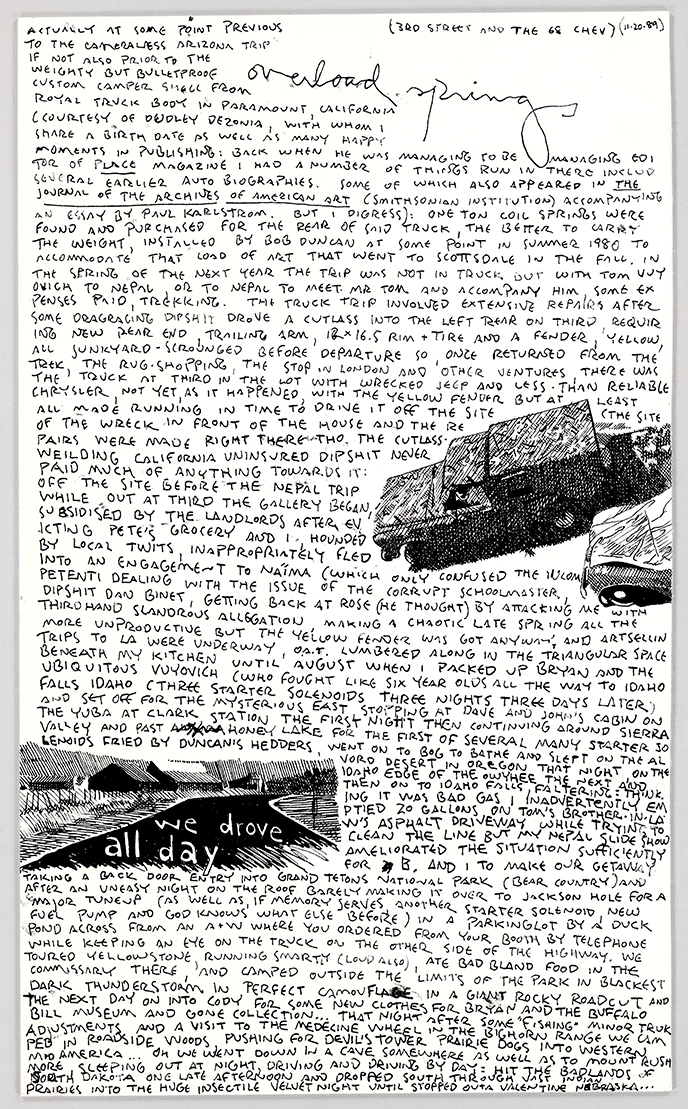 (3RD STREET AND THE 68 CHEV) (11-20-89)
overload springs
ACTUALLY AT SOME POINT PREVIOUS
TO THE CAMERALESS ARIZONA TRIP
IF NOT ALSO PRIOR TO THE
WEIGHTY BUT BULLETPROOF
CUSTOM CAMPER SHELL FROM
ROYAL TRUCK BODY IN PARAMOUNT, CALIFORNIA
(COURTESY OF DUDLEY DEZONIA, WITH WHOM I
SHARE A BIRTH DATE AS WELL AS MANY HAPPY
MOMENTS IN PUBLISHING: BACK WHEN HE WAS MANAGING TO BE MANAGING EDI
TOR OF PLACE MAGAZINE I HAD A NUMBER OF THINGS RUN IN THERE INCLUD
SEVERAL EARLIER AUTO BIOGRAPHIES. SOME OF WHICH ALSO APPEARED IN THE
JOURNAL OF THE ARCHIVES OF AMERICAN ART (SMITHSONIAN INSTITUTION) ACCOMPANYING
AN ESSAY BY PAUL KARLSTROM. BUT I DIGRESS): ONE TON COIL SPRINGS WERE
FOUND AND PURCHASED FOR THE REAR OF SAID TRUCK, THE BETTER TO CARRY
THE WEIGHT, INSTALLED BY BOB DUNCAN AT SOME POINT IN SUMMER 1980 TO
ACCOMMODATE THAT LOAD OF ART THAT WENT TO SCOTTSDALE IN THE FALL. IN
THE SPRING OF THE NEXT YEAR THE TRIP WAS NOT IN TRUCK BUT WITH TOM VUY
OVICH TO NEPAL, OR TO NEPAL TO MEET MR TOM AND ACCOMPANY HIM, SOME EX
PENSES PAID, TREKKING. THE TRUCK TRIP INVOLVED EXTENSIVE REPAIRS AFTER
SOME DRAGRACING DIPSHIT DROVE A CUTLASS INTO THE LEFT REAR ON THIRD REQUIR
ING NEW REAR END, TRAILING ARM, 12×16.5 RIM + TIRE AND A FENDER, YELLOW,
ALL JUNKYARD-SCROUNGED BEFORE DEPARTURE SO, ONCE RETURNED FROM THE
TREK, THE RUG-SHOPPING, THE STOP IN LONDON AND OTHER VENTURES, THERE WAS
THE TRUCK AT THIRD IN THE LOT WITH WRECKED JEEP AND LESS-THAN RELIABLE
CHRYSLER, NOT YET, AS IT HAPPENED, WITH THE YELLOW FENDER BUT AT LEAST
ALL MADE RUNNING IN TIME TO DRIVE IT OFF THE SITE (THE SITE
OF THE WRECK IN FRONT OF THE HOUSE AND THE RE
PAIRS WERE MADE RIGHT THERE THO. THE CUTLASS-
WEILDING CALIFORNIA UNINSURED DIPSHIT NEVER
PAID MUCH OF ANYTHING TOWARDS IT:
OFF THE SITE BEFORE THE NEPAL TRIP
WHILE OUT AT THIRD THE GALLERY BEGAN,
SUBSIDISED BY THE LANDLORDS AFTER EV
ICTING PETE'S GROCERY AND I, HOUNDED
BY LOCAL TWITS, INAPPROPRIATELY FLED
INTO AN ENGAGEMENT TO NAIMA (WHICH ONLY CONFUSED THE INCOM
PETENT) DEALING WITH THE ISSUE OF THE CORRUPT SCHOOLMASTER,
DIPSHIT DAN BINET, GETTING BACK AT ROSE (HE THOUGHT) BY ATTACKING ME WITH
THIRDHAND SLANDROUS ALLEGATION MAKING A CHAOTIC LATE SPRING ALL THE
MORE UNPRODUCTIVE BUT THE YELLOW FENDER WAS GOT ANYWAY, AND ARTSELLIN
TRIPS TO LA WERE UNDERWAY, O.A.T. LUMBERED ALONG IN THE TRIANGULAR SPACE
BENEATH MY KITCHEN UNTIL AUGUST WHEN I PACKED UP BRYAN AND THE
UBIQUITOUS VUYOVICH (WHO FOUGHT LIKE SIX YEAR OLDS ALL THE WAY TO IDAHO
FALLS IDAHO (THREE STARTER SOLENOIDS THREE NIGHTS THREE DAYS LATER)
AND SET OFF FOR THE MYSTERIOUS EAST STOPPING AT DAVE AND JOHN'S CABIN ON
THE YUBA AT CLARK STATION THE FIRST NIGHT THEN CONTINUING AROUND SIERRA
VALLEY AND PAST HONEY LAKE FOR THE FIRST OF SEVERAL MANY STARTER SO
LENOIDS FRIED BY DUNCAN'S HEDDERS, WENT ON TO BOG TO BATHE AND SLEPT ON THE AL
VORD DESERT IN OREGON THAT NIGHT, ON THE
IDAHO EDGE OF THE OWYHEE THE NEXT AND
THEN ON TO IDAHO FALLS, FALTERING: THINK
ING IT WAS BAD GAS I INADVERTENTLY EM
PTIED 20 GALLONS ON TOM'S BROTHER-IN-LA
W'S ASPHALT DRIVEWAY WHILE TRYING TO
CLEAN THE LINE BUT MY NEPAL SLIDE SHOW
AMELIORATED THE SITUATION SUFFICIENTLY
FOR B. AND I TO MAKE OUR GETAWAY
we drove
all day
TAKING A BACK DOOR ENTRY INTO GRAND TETONS NATIONAL PARK (BEAR COUNTRY) AND
AFTER AN UNEASY NIGHT ON THE ROOF BARELY MAKING IT OVER TO JACKSON HOLE FOR A
MAJOR TUNEUP (AS WELL AS, IF MEMORY SERVES, ANOTHER STARTER SOLENOID, NEW
FUEL PUMP AND GOD KNOWS WHAT ELSE BEFORE) IN A PARKINGLOT BY A DUCK
POND ACROSS FROM AN A+W WHERE YOU ORDERED FROM YOUR BOOTH BY TELEPHONE
WHILE KEEPING AN EYE ON THE TRUCK ON THE OTHER SIDE OF THE HIGHWAY. WE
TOURED YELLOWSTONE, RUNNING SMARTLY (LOUD ALSO), ATE BAD BLAND FOOD IN THE
COMMISSARY THERE, AND CAMPED OUTSIDE THE LIMITS OF THE PARK IN BLACKEST
DARK THUNDERSTORM IN PERFECT CAMOUFLAGE IN A GIANT ROCKY ROADCUT AND
THE NEXT DAY ON INTO CODY FOR SOME NEW CLOTHES FOR BRYAN AND THE BUFFALO
BILL MUSEUM AND GONE COLLECTION... THAT NIGHT AFTER SOME "FISHING" MINOR TRUK
ADJUSTMENTS AND A VISIT TO THE MEDECINE WHEEL IN THE BIGHORN RANGE WE CAM
PED IN ROADSIDE WOODS, PUSHING FOR DEVIL'S TOWER PRAIRIE DOGS INTO WESTERN
MID AMERICA... OH WE WENT DOWN IN A CAVE SOMEWHERE AS WELL AS TO MOUNT RUSH
MORE SLEEPING OUT AT NIGHT, DRIVING AND DRIVING BY DAY: HIT THE BADLANDS OF
NORTH DAKOTA ONE LATE AFTERNOON AND DROPPED SOUTH THROUGH VAST INDIAN
PRAIRIES INTO THE HUGE INSECTILE VELVET NIGHT UNTIL STOPPED OUTA VALENTINE NEBRASKA...